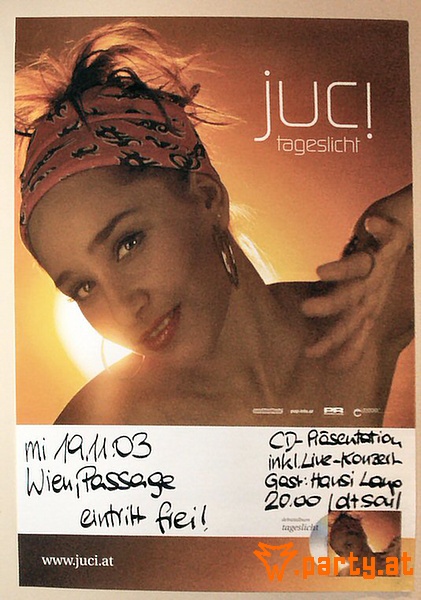 juci
tageslicht
pop-info.at
mi 19.11.03
Wien, Passage
eintritt frei!
CD-Präsentation
inkl. Live-Konzert
Gast: Hansi Lang
20.00
debutalbum
tageslicht
www.juci.at
party.at